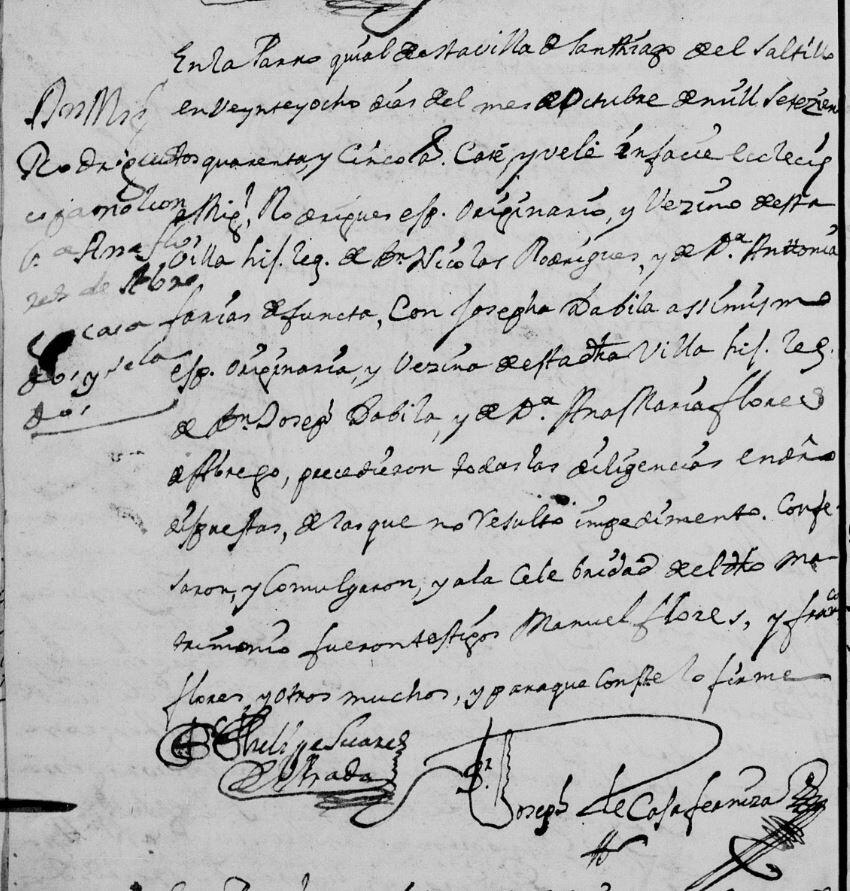 En la Parroquial de esta villa de Santhiago de el Saltillo
en Veynte y ocho dias del mes de Octubre de mill Setezien
tos quarenta, y Cinco a.s Casé, y velé in facie Eclecię
a Mig.l Rodrigues esp. Originario, y Vezino de esta
Villa hij. leg. de Dn Nicolas Rodrigues, y de D.a Anttonia
farias defuncta, Con Josepha Dabila assimismo
esp. Originaria, y Vezina de esta dha Villa hij. leg.
de Dn Joseph Dabila, y de D.a Ana Maria flores
de Abrego, precedieron todas las diligencias en dro
dispuestas, de las que no Resulto impedimento. Confe
saron, y Comulgaron, y a la Celebridad de el dho Ma
trimonio fueron testigos Manuel flores, y fran.co
flores, y otros muchos, y para que Conste lo firme
Phelipe Suares
de Estrada
Br. Joseph de Casaferniza
Dn Mig.l
Rodrig
con
Ana flo
res de Abre
go casa
dos, y vela
dos,